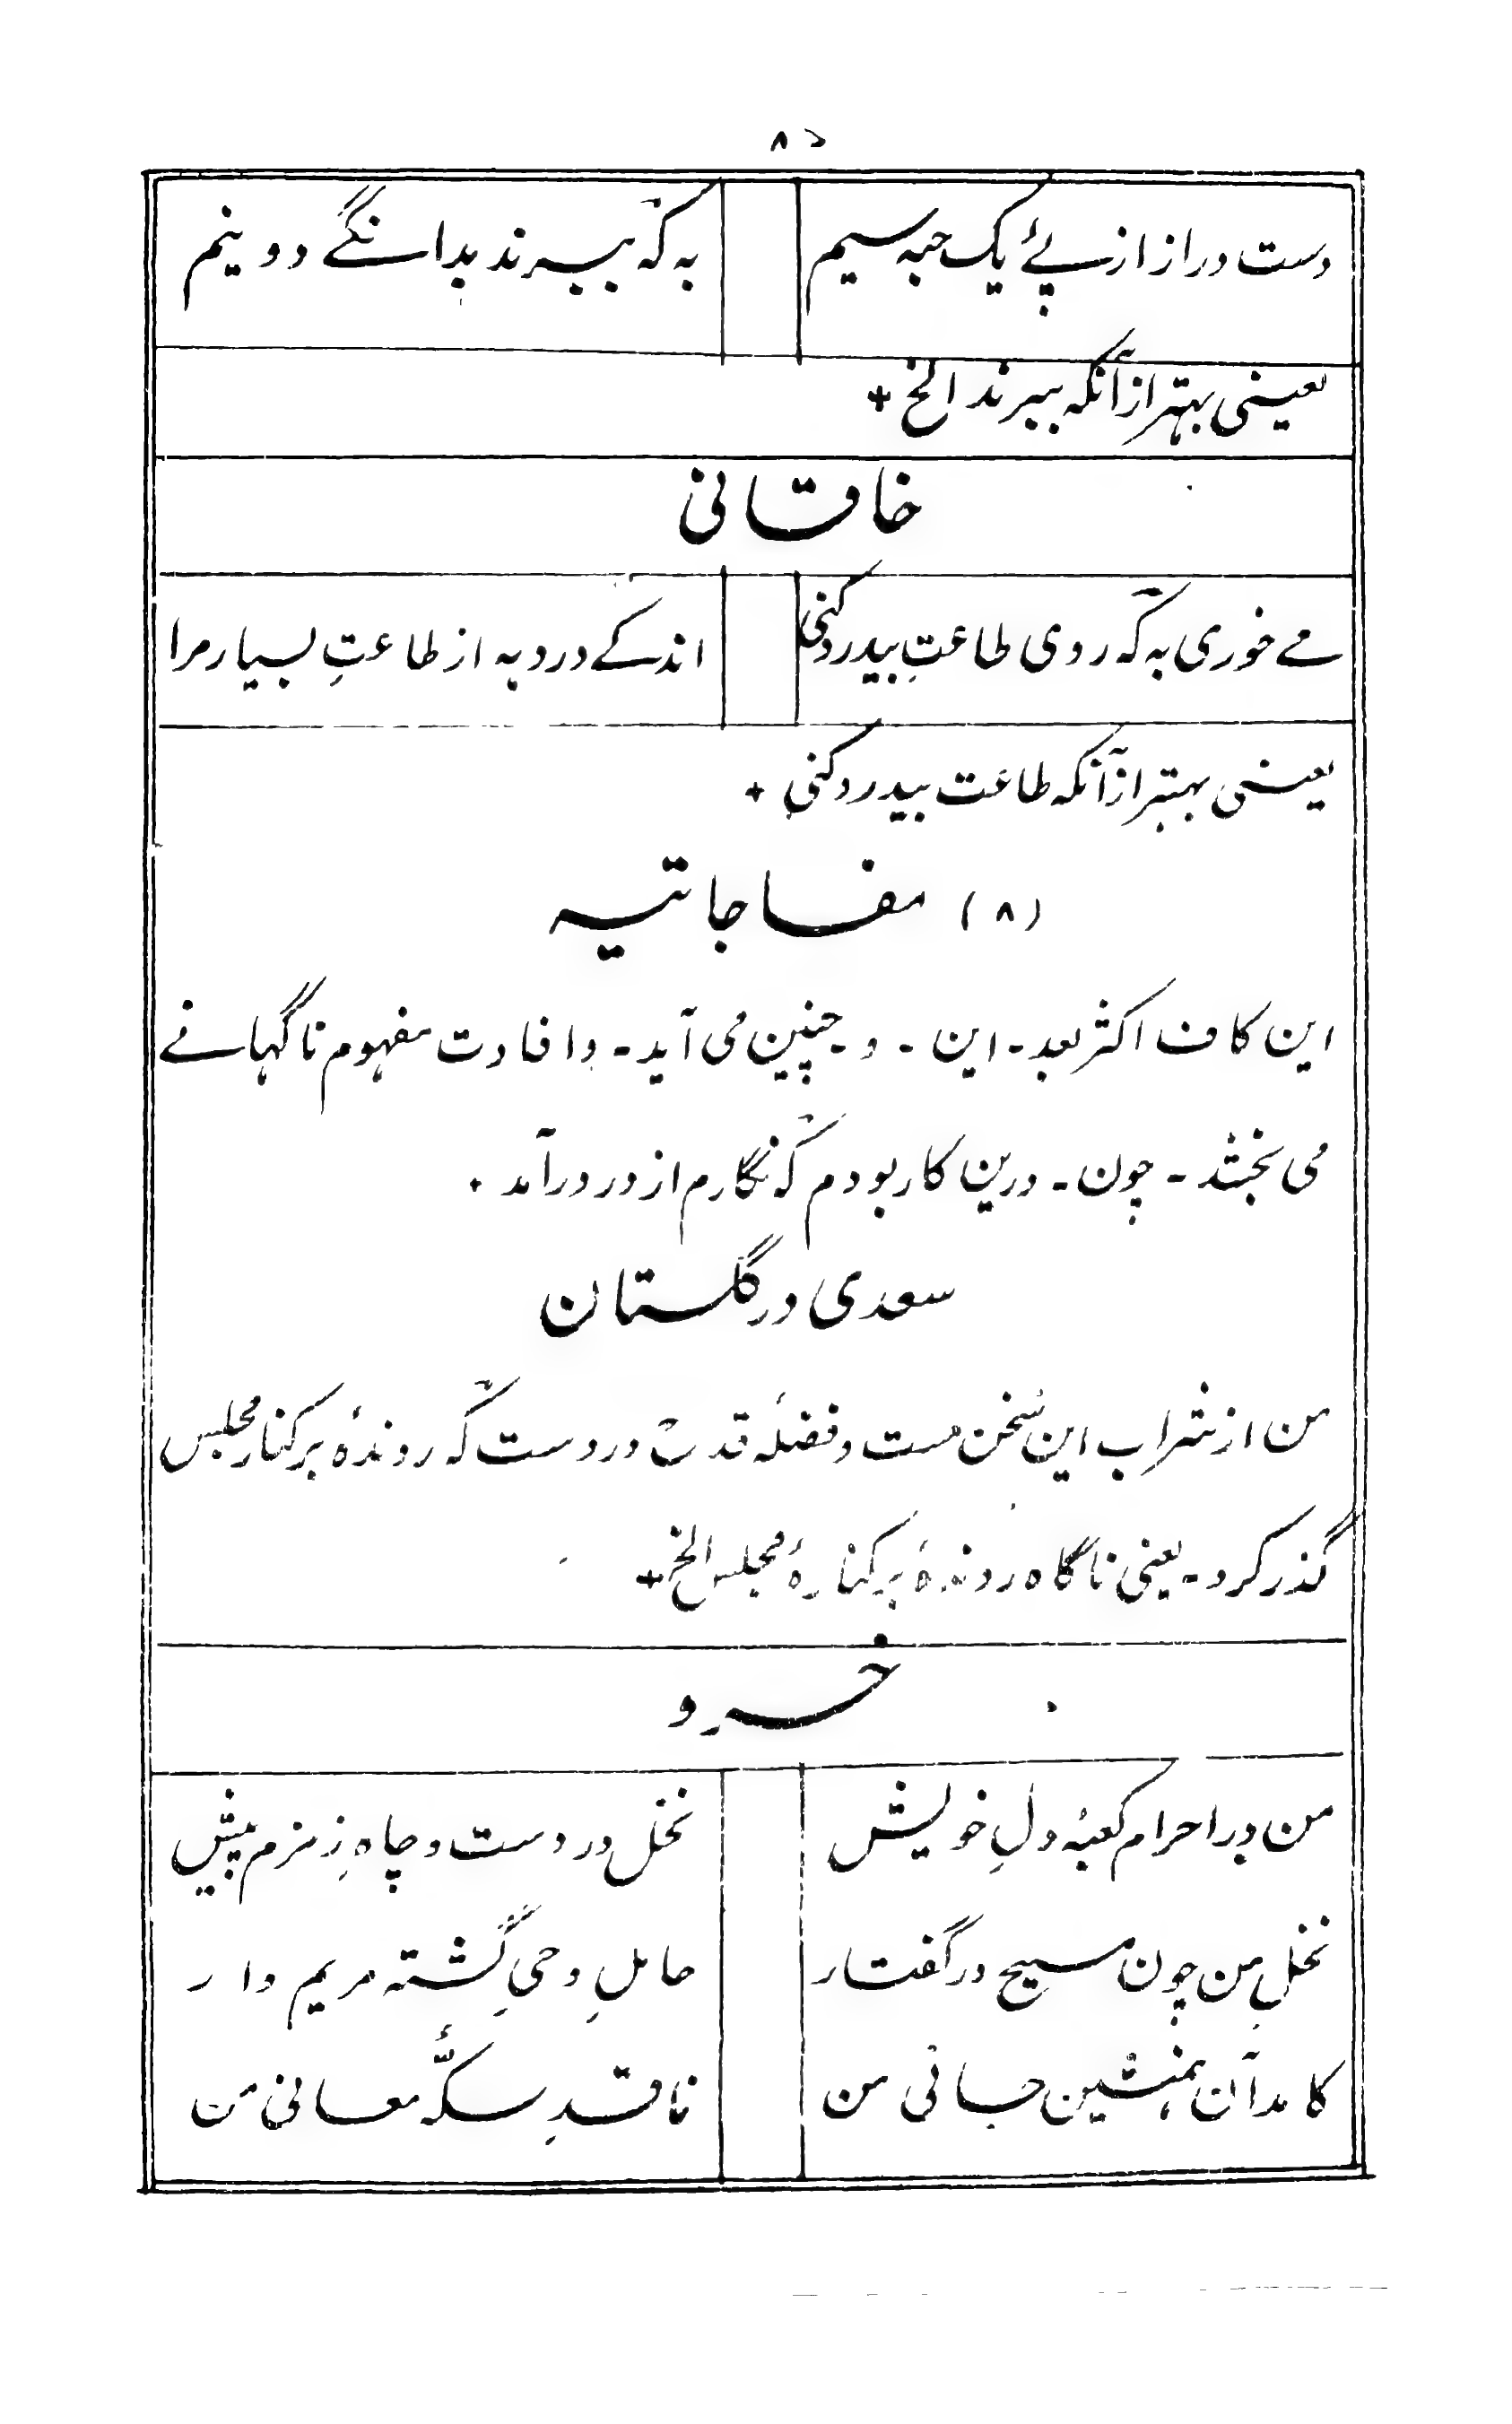 دست دراز از پئے یک حبہ سیم
بہ کہ ببرند بدانگے دو نیم
یعنی بہتر از آنکہ ببرند الخ +
خاقانی
مے خوری بہ کہ روی طاعتِ بیدرد کنی
اندکے درد بہ از طاعتِ بسیار مرا
یعنی بہتر از آنکہ طاعت بیدرد کنی +
(۸) مفاجاتیہ
این کاف اکثر بعد ـ این ـ و ـ چنین می آید ـ وافادت مفہوم ناگہانے
می بخشد ـ چون ـ درین کار بودم کہ نگارم از در درآمد ٠
سعدی در گلستان
من از شراب این سخن مست و فضلۂ قدح در دست کہ روندۂ بر کنار مجلس
گذر کرد ـ یعنی ناگاہ روندۂ بر کنارۂ مجلس الخ +
خسرو
من در احرام کعبۂ دلِ خویش
نخل در دست و چاہِ زمزم پیش
نخلِ من چون مسیح در گفتار
حاملِ وحیِ گشتہ مریم وار
کامد آن ہمنشین جانی من
ناقدِ سکّۂ معانی من